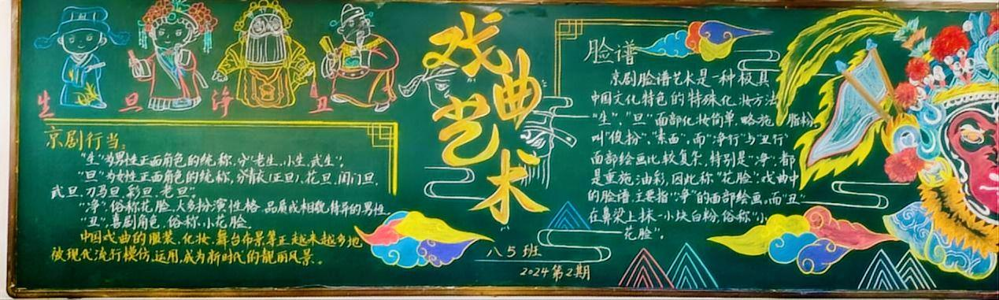 生 旦 净 丑
京剧行当:
"生"为男性正面角色的统称,分"老生、小生、武生",
"旦"为女性正面角色的统称,分青衣(正旦)、花旦、闺门旦、
武旦、刀马旦、彩旦、老旦"
"净",俗称花脸,大多扮演性格、品质或相貌特异的男性
"丑",喜剧角色,俗称"小花脸。
中国戏曲的服装、化妆、舞台布景等正越来越多地
被现代流行模仿、运用,成为新时代的靓丽风景。
戏曲
艺术
八5班
2024第2期
脸谱
京剧脸谱艺术是一种极具
中国文化特色的特殊化妆方法
"生"、"旦"面部化妆简单,略施脂粉,
叫"俊扮"、"素面",而"净行"与"丑行"
面部绘画比较复杂,特别是"净",都
是重施油彩,因此称"花脸"。戏曲中
的脸谱,主要指"净"的面部绘画。而"丑"
在鼻梁上抹一小块白粉,俗称"小
花脸"。